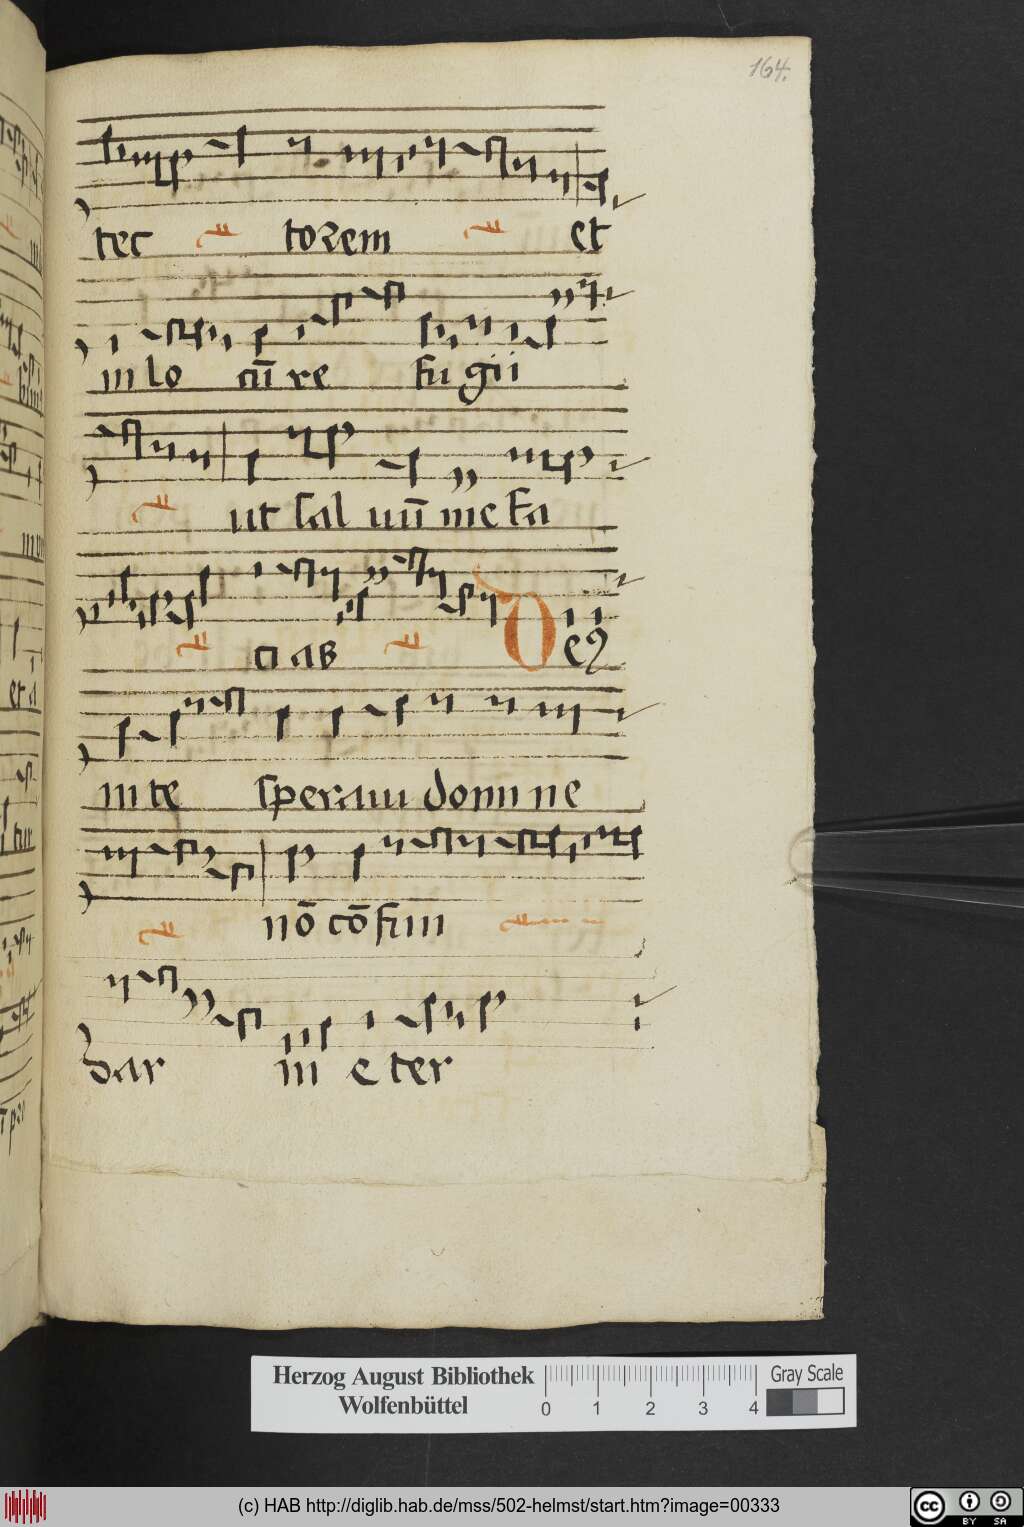 164.
tec torem et
in lo cū re fu gii
ut sal uū me fa
ci as Deꝰ
in te speraui domi ne
nō cō fun
dar in e ter
et a
tur
Herzog August Bibliothek
Wolfenbüttel
0 1 2 3 4
Gray Scale
(c) HAB http://diglib.hab.de/mss/502-helmst/start.htm?image=00333
cc BY SA